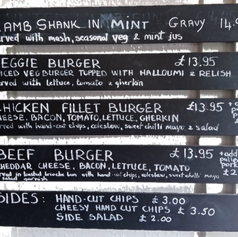 LAMB SHANK IN MINT GRAVY 14.
served with mash, seasonal veg & mint jus
VEGGIE BURGER £13.95
SPICED VEG BURGER TOPPED WITH HALLOUMI & RELISH
served with lettuce, tomato & gherkin
CHICKEN FILLET BURGER £13.95 +add
CHEESE, BACON, TOMATO, LETTUCE, GHERKIN
served with hand-cut chips, coleslaw, sweet chilli mayo & salad
BEEF BURGER £13.95 +add
CHEDDAR CHEESE, BACON, LETTUCE, TOMATO
served in toasted brioche bun with hand cut chips, coleslaw, sweet chilli mayo
salad garnish
SIDES: HAND-CUT CHIPS £3.00
CHEESY HAND CUT CHIPS £3.50
SIDE SALAD £2.00